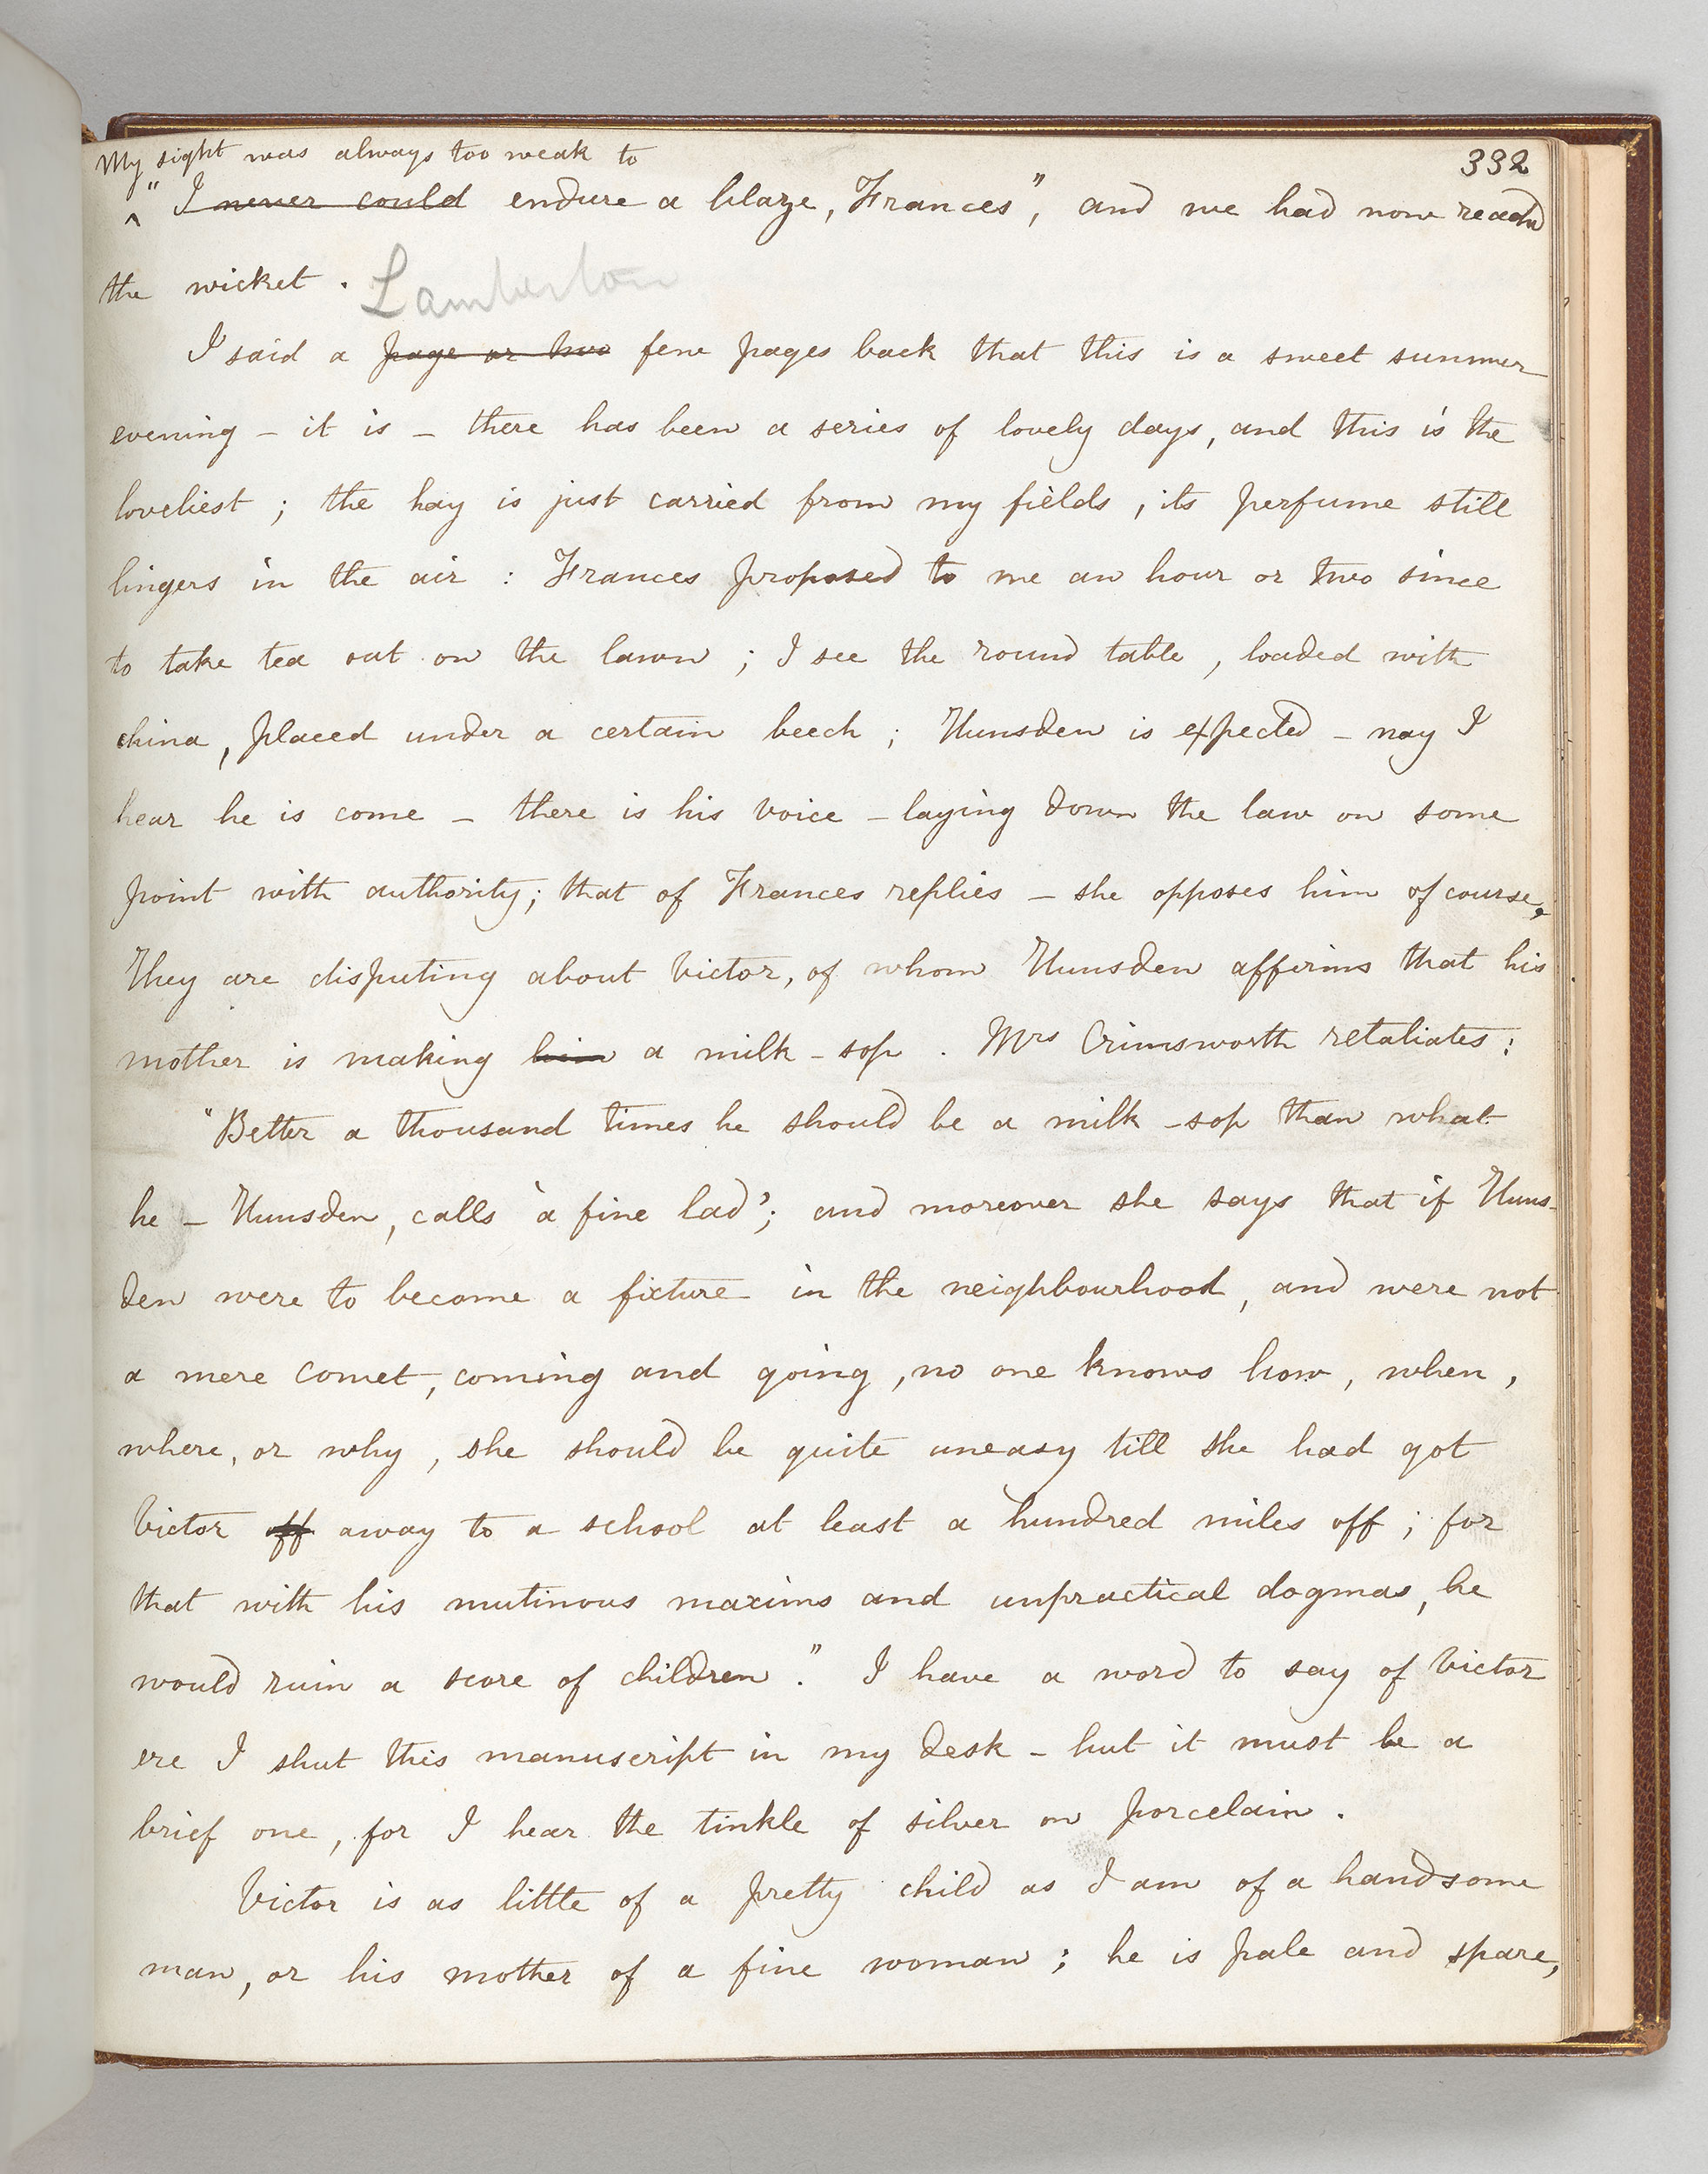 332
My sight was always too weak to
^ "I never could endure a blaze, Frances", and we had now reachd
the wicket. Lamberton
I said a page or two few pages back that this is a sweet summer
evening – it is – there has been a series of lovely days, and this is the
loveliest ; the hay is just carried from my fields, its perfume still
lingers in the air : Frances proposed to me an hour or two since
to take tea out on the lawn ; I see the round table, loaded with
china, placed under a certain beech ; Hunsden is expected – nay I
hear he is come – there is his voice – laying down the law on some
point with authority; that of Frances replies – she opposes him of course.
They are disputing about Victor, of whom Hunsden affirms that his
mother is making him a milk-sop. Mrs Crimsworth retaliates :
"Better a thousand times he should be a milk-sop than what
he – Hunsden, calls 'a fine lad'; and moreover she says that if Huns-
den were to become a fixture in the neighbourhood, and were not
a mere comet, coming and going, no one knows how, when,
where, or why, she should be quite uneasy till she had got
Victor off away to a school at least a hundred miles off ; for
that with his mutinous maxims and unpractical dogmas, he
would ruin a score of children." I have a word to say of Victor
ere I shut this manuscript in my desk – but it must be a
brief one, for I hear the tinkle of silver on porcelain.
Victor is as little of a pretty child as I am of a handsome
man, or his mother of a fine woman ; he is pale and spare,